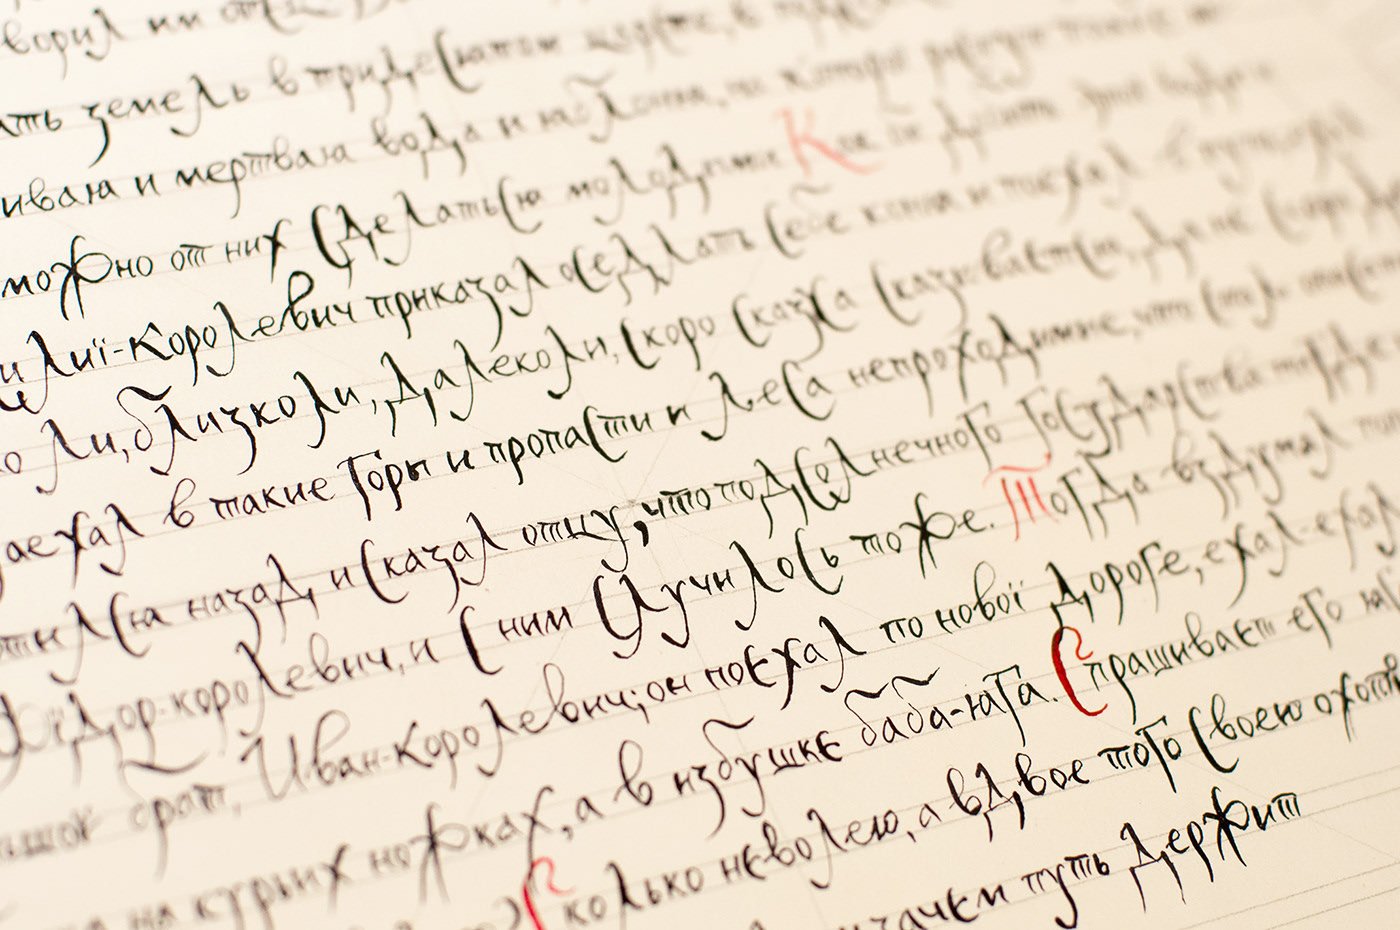 ворил им от
ать земель в тридесятом царстве, в
иваю и мертваю вода и яблони, на которо растут такие
можно от них сделаться молодыми Как бы достать эти
илиї-Королевич приказал оседлать себе коня и поехал в путь,
ко ли, близко ли, далеко ли, скоро сказка сказывается, да не скоро
аехал в такие горы и пропасти и леса непроходимые, что
тился назад, и сказал отцу, что подсолнечного государства нигде
Фїдор-королевич, и с ним случилось тоже. Тогда вздумал
шой брат, Иван-королевич; он поехал по нової дороге, ехал-ехал
на курьих ножках, а в избушке баба-юга. Спрашивает его
Сколько неволею, а вдвое того своею охотою
путь держит